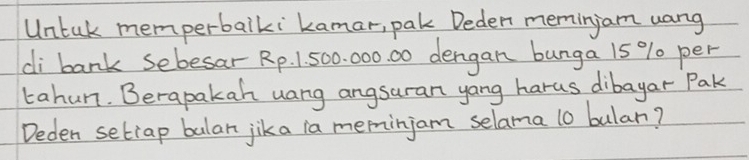 Untuk memperbaiki kamar, pak Deden meminjam uang
di bank sebesar Rp.1.500.000.00 dengan bunga 15% per
tahun. Berapakah uang angsuran yang harus dibayar Pak
Deden setiap bulan jika ia meminjam selama 10 bulan?